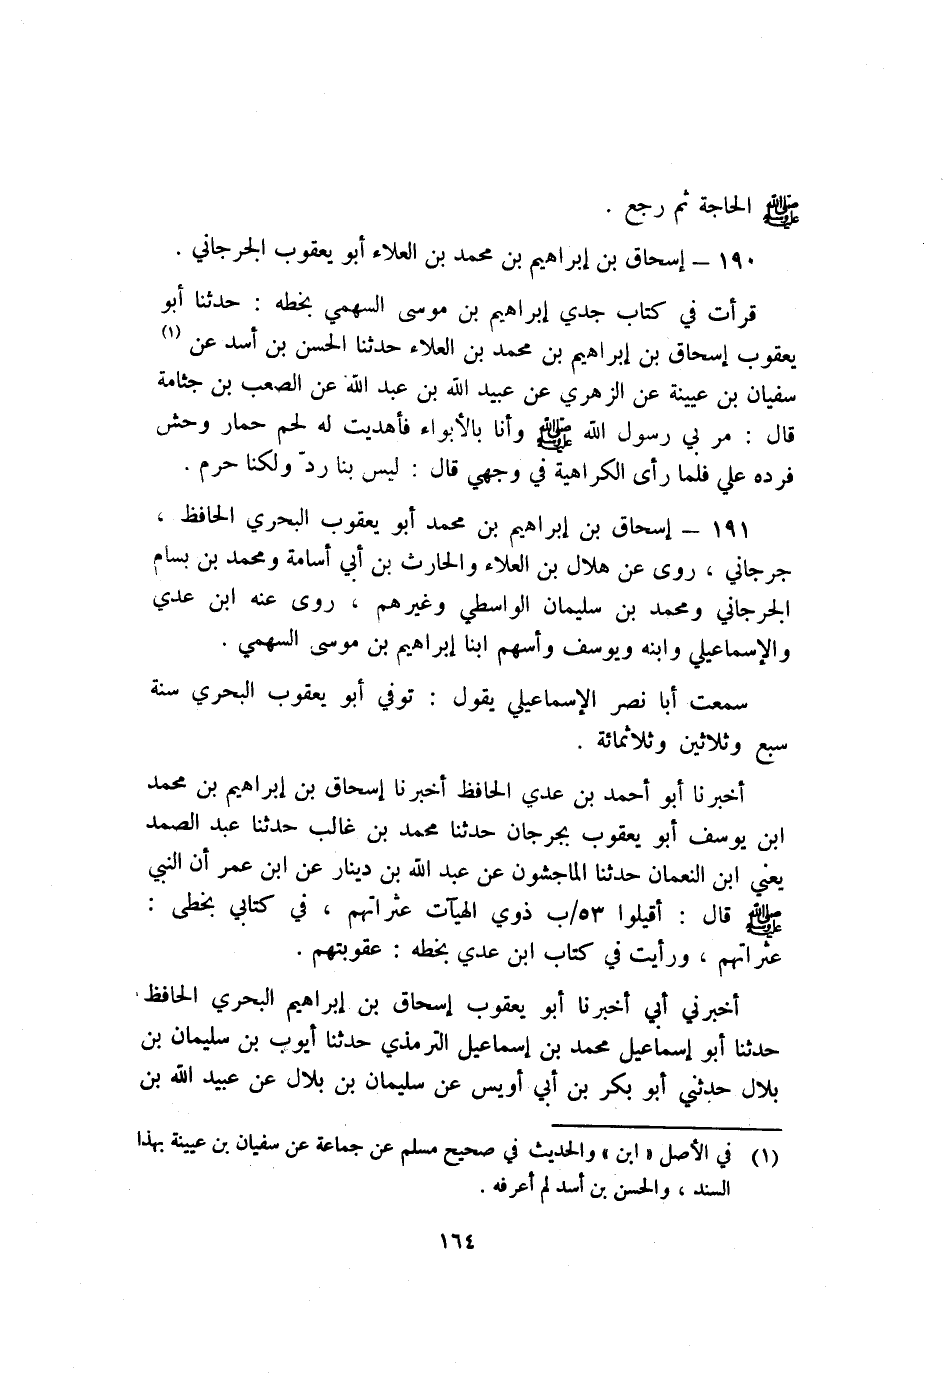 ﷺ الحاجة ثم رجع .
١٩٠ – إسحاق بن إبراهيم بن محمد بن العلاء أبو يعقوب الجرجاني .
قرأت في كتاب جدي إبراهيم بن موسى السهمي بخطه : حدثنا أبو
يعقوب إسحاق بن إبراهيم بن محمد بن العلاء حدثنا الحسن بن أسد عن (١)
سفيان بن عيينة عن الزهري عن عبيد الله بن عبد الله عن الصعب بن جثامة
قال : مر بي رسول الله ﷺ وأنا بالأبواء فأهديت له لحم حمار وحش
فرده علي فلما رأى الكراهية في وجهي قال : ليس بنا ردّ ولكنا حرم .
١٩١ – إسحاق بن إبراهيم بن محمد أبو يعقوب البحري الحافظ ،
جرجاني ، روى عن هلال بن العلاء والحارث بن أبي أسامة ومحمد بن بسام
الجرجاني ومحمد بن سليمان الواسطي وغيرهم ، روى عنه ابن عدي
والإسماعيلي وابنه ويوسف وأسهم ابنا إبراهيم بن موسى السهمي .
سمعت أبا نصر الإسماعيلي يقول : توفي أبو يعقوب البحري سنة
سبع وثلاثين وثلاثمائة .
أخبرنا أبو أحمد بن عدي الحافظ أخبرنا إسحاق بن إبراهيم بن محمد
ابن يوسف أبو يعقوب بجرجان حدثنا محمد بن غالب حدثنا عبد الصمد
يعني ابن النعمان حدثنا الماجشون عن عبد الله بن دينار عن ابن عمر أن النبي
ﷺ قال : أقيلوا ٥٣/ب ذوي الهيآت عثراتهم ، في كتابي بخطى :
عثراتهم ، ورأيت في كتاب ابن عدي بخطه : عقوبتهم .
أخبرني أبي أخبرنا أبو يعقوب إسحاق بن إبراهيم البحري الحافظ
حدثنا أبو إسماعيل محمد بن إسماعيل الترمذي حدثنا أيوب بن سليمان بن
بلال حدثني أبو بكر بن أبي أويس عن سليمان بن بلال عن عبيد الله بن
(١) في الأصل « ابن » والحديث في صحيح مسلم عن جماعة عن سفيان بن عيينة بهذا
السند ، والحسن بن أسد لم أعرفه .
١٦٤